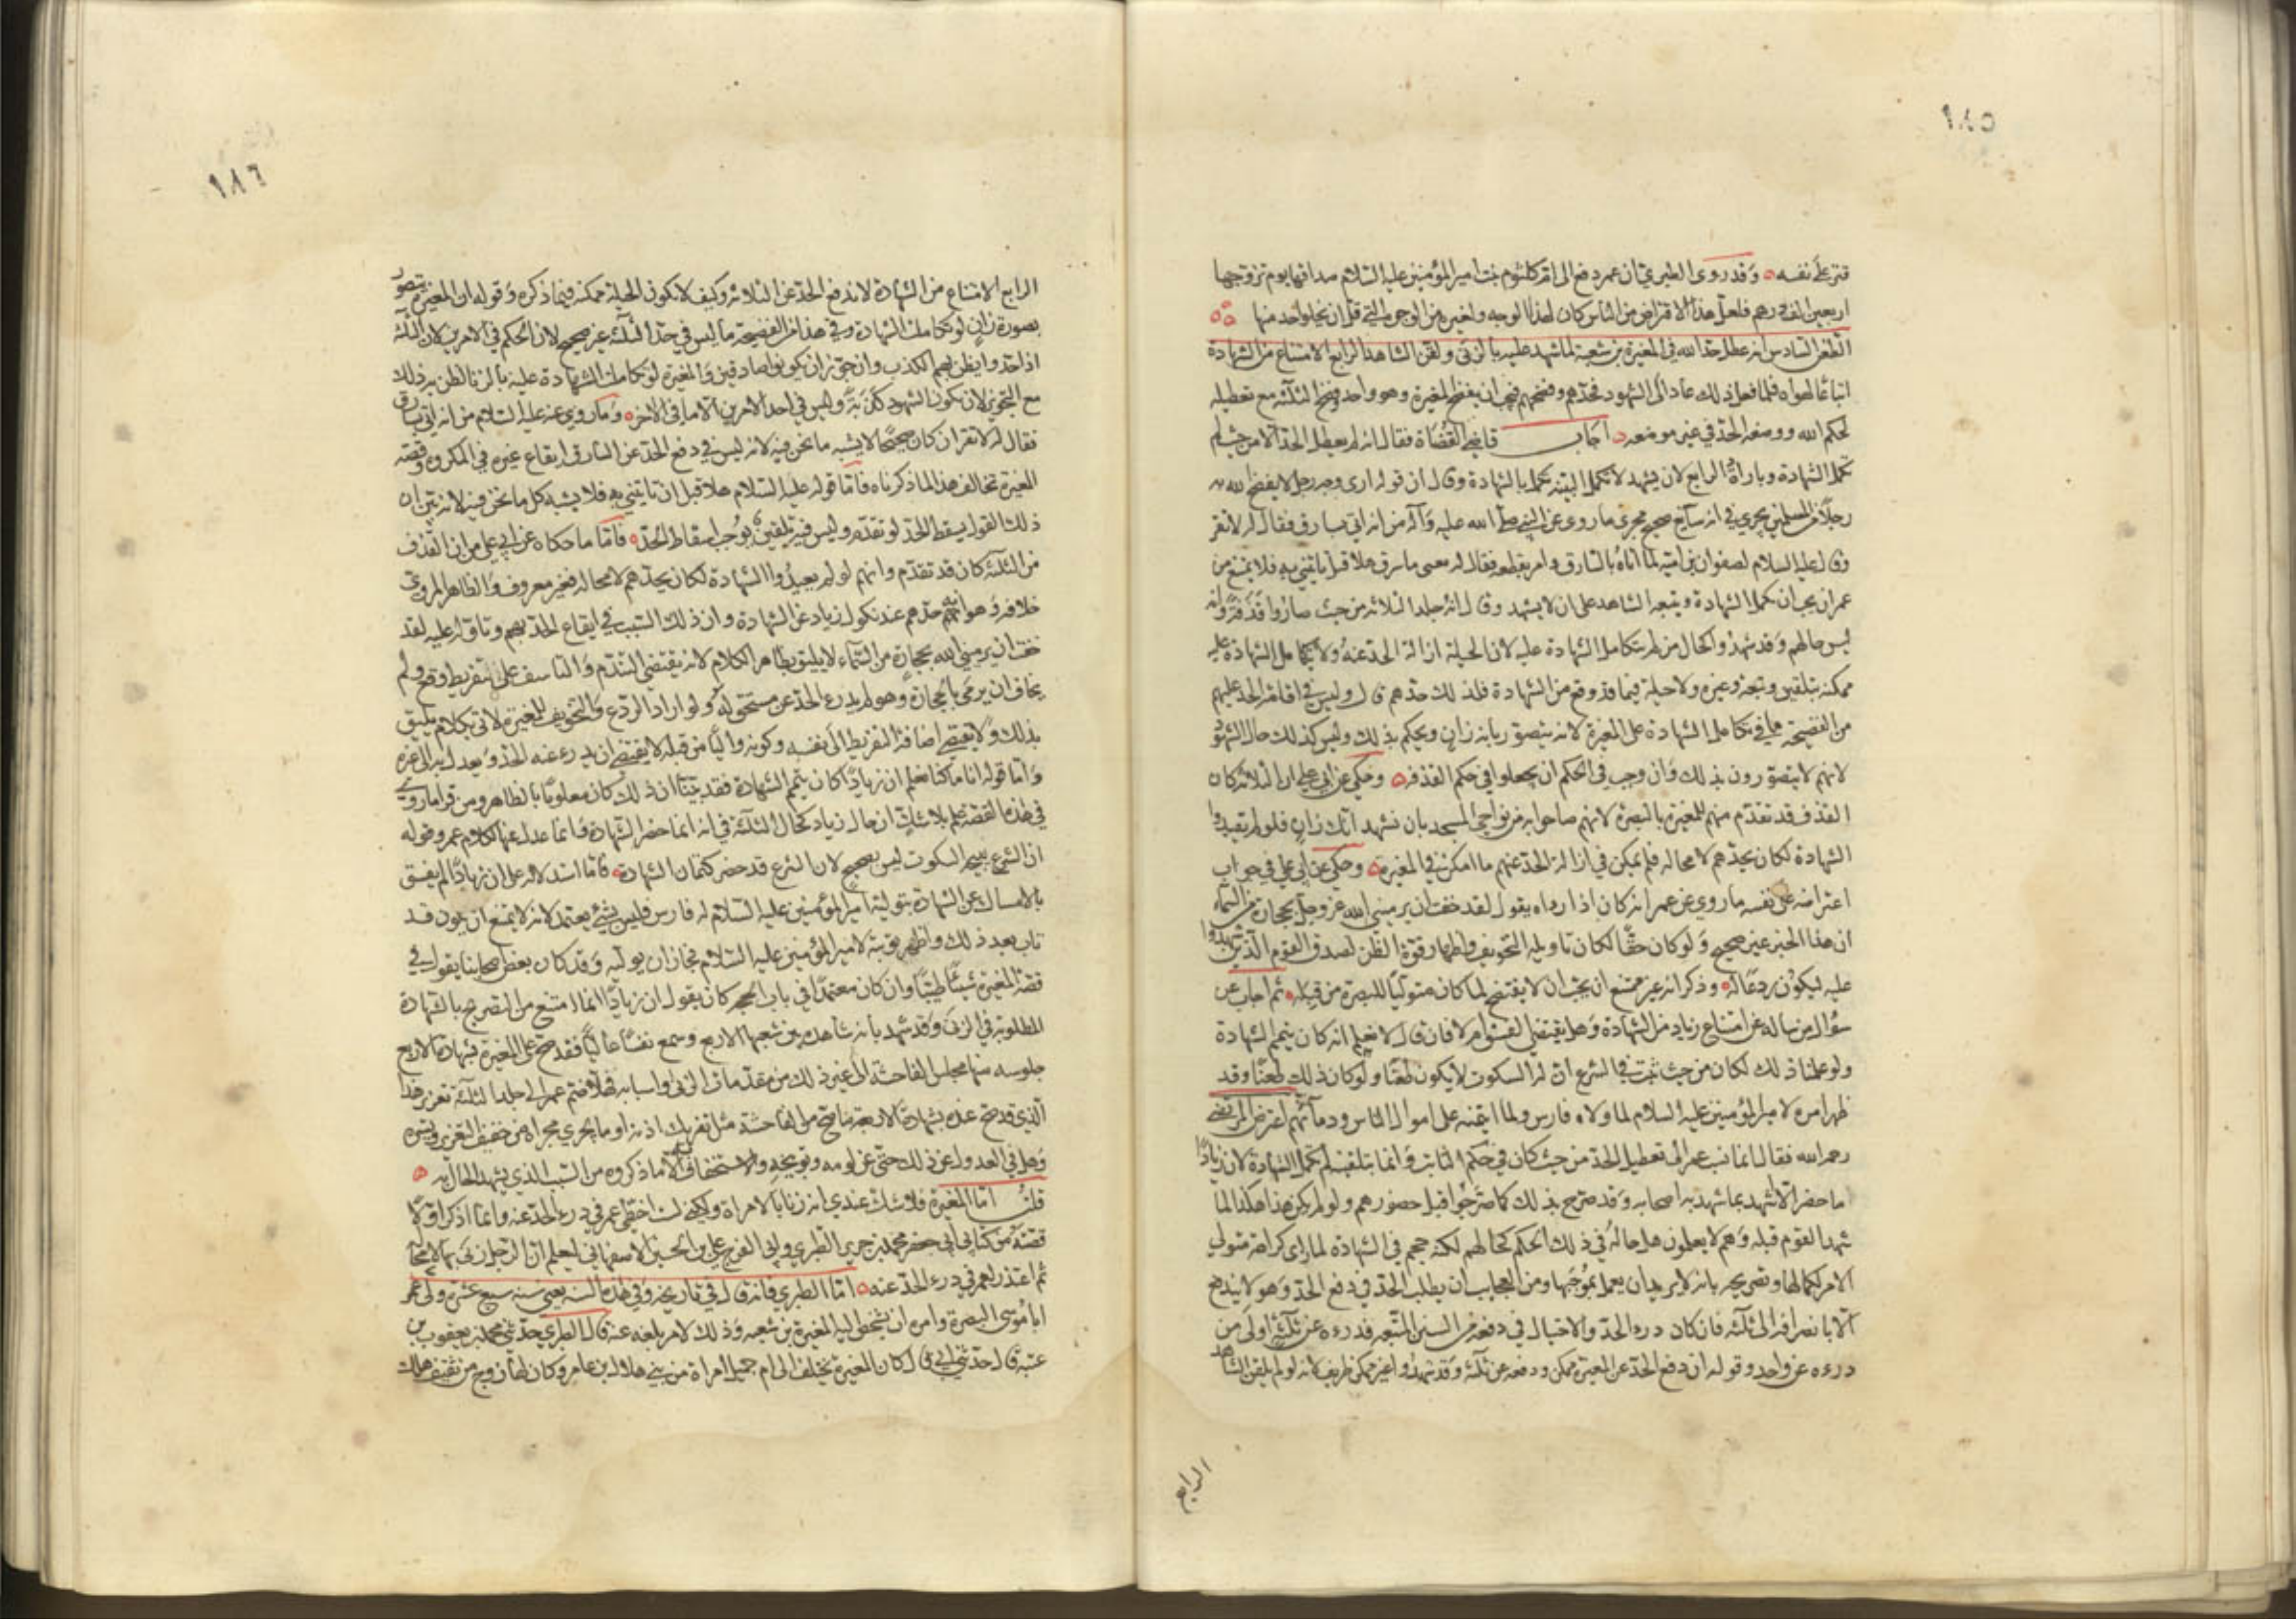 ١٨٥
قتر على نفسه وقد روى الطبري ان عمر دفع الى ام كلثوم بنت امير المؤمنين عليه السلام صداقها يوم تزوجها
اربعين الف درهم فلعل هذا الاقتراض من الناس كان لهذا الوجه ولغيره من الوجوه التي قل ان يخلو احد منها
الطعن السادس انه عطل حد الله في المغيرة بن شعبة لما شهد عليه بالزنى ولقن الشاهد الرابع الامتناع من الشهادة
اتباعا لهواه فلما فعل ذلك عاد الى الشهود فحدهم وفضحهم فتجنب ان يفضح المغيرة وهو واحد وفضح الثلثة مع تعطيله
لحكم الله ووضعه الحد في غير موضعه اجاب قاضي القضاة فقال انه لم يعطل الحد الا من حيث لم
تكمل الشهادة وبارادة الرابع لان يشهد لا تكمل البينة انما تكمل بالشهادة وقال ان قوله ارى وجه رجل لا يفضح الله به
رجلا من المسلمين يجري في انه سايغ صحيح مجرى ما روى عن النبي صلى الله عليه وآله من انه اتي بسارق فقال له لا تقر
وقال عليه السلام لصفوان بن امية لما اتاه بالسارق وامر بقطعه فقال له يعنى ما سرق هلا قبل ان تاتيني به فلا يمتنع من
عمر ان يحب ان تكمل الشهادة وينبه الشاهد على ان لا يشهد وقال انه جلد الثلاثة من حيث صاروا قذفة وانه
ليس حالهم وقد شهدوا كحال من لم تتكامل الشهادة عليه لان الحيلة في ازالة الحد عنه ولما تتكامل الشهادة عليه
ممكنة بتلقين وتنبه وغيره ولا حيلة فيما قد وقع من الشهادة فلذلك حدهم قال وليس في اقامة الحد عليهم
من الفضيحة ما في تكامل الشهادة على المغيرة لانه يتصور بانه زان ويحكم بذلك وليس كذلك حال الشهود
لانهم لا يتصورون بذلك وان وجب في الحكم ان يجعلوا في حكم القذفة وحكى عن ابي علي ان الثلاثة كان
القذف قد تقدم منهم للمغيرة بالبصرة لانهم صاحوا به من نواحي المسجد بان نشهد انك زان فلو لم يعيدوا
الشهادة لكان يحدهم لا محالة فلم يمكن في ازالة الحد عنهم ما امكن في المغيرة وحكى عن ابي علي في جواب
اعتراضه على نفسه ما روي عن عمر انه كان اذا رآه يقول لقد خفت ان يرميني الله عز وجل بحجارة من السماء
ان هذا الخبر غير صحيح ولو كان حقا لكان تاويله التخويف واظهار قوة الظن لصدق القوم الذين شهدوا
عليه ليكون ردعا له وذكر انه غير ممتنع ان يحب ان لا يفتضح لما كان متوليا للبصرة من قبله ثم اجاب عن
سؤال من ساله عن امتناع زياد من الشهادة وهل يقتضي الفسق ام لا فان قال لا نعلم انه كان يتمم الشهادة
ولو علمنا ذلك لكان من حيث ثبت في الشرع ان له السكوت لا يكون طعنا ولو كان ذلك طعنا وقد
ظهر امره لامير المؤمنين عليه السلام لما ولاه فارس ولما ائتمنه على اموال الناس ودمائهم اعترض المرتضى
رحمه الله فقال انما نسب عمر الى تعطيل الحد من حيث كان في حكم الثابت وانما بتلقينه لم تكمل الشهادة لان زيادا
ما حضر الا ليشهد بما شهد به اصحابه وقد صرح بذلك كما صرحوا قبل حضورهم ولو لم يكن هذا هكذا لما
شهد القوم قبله وهم لا يعلمون هل حاله في ذلك الحكم كحالهم لكنه احجم في الشهادة لما راى كراهة متولي
الامر لكمالها وتصريحه بانه لا يريد ان يعمل بموجبها ومن العجايب ان يطلب الحيلة في دفع الحد وهو لا يندفع
الا بانصرافه الى ثلثة فان كان درء الحد والاحتيال في دفعه من السنن المتبعة فدرءه عن ثلثة اولى من
درءه عن واحد وقوله ان دفع الحد عن المغيرة ممكن ودفعه عن ثلثة وقد شهدوا غير ممكن طريف لانه لو لم يلقن الشاهد
الرابع
١٨٦
الرابع الامتناع من الشهادة لاندفع الحد عن الثلاثة وكيف لا تكون الحيلة ممكنة فيما ذكره وقوله ان المغيرة يتصور
بصورة زان لو تكاملت الشهادة وفي هذا من الفضيحة ما ليس في حد الثلثة غير صحيح لان الحكم في الامرين كان الثلثة
اذا حدوا يظن بهم الكذب وان جوز ان يكونوا صادقين والمغيرة لو تكاملت الشهادة عليه بالزنا لظن به ذلك
مع التجويز لان تكون الشهود كذبة وليس في احد الامرين الا ما في الاخر وما روي عنه عليه السلام من انه اتي بسارق
فقال له لا تقر ان كان صحيحا لا يشبه ما نحن فيه لانه ليس في دفع الحد عن السارق ايقاع غيره في المكروه وقصة
المغيرة تخالف هذا لما ذكرناه فاما قوله عليه السلام هلا قبل ان تاتيني به فلا يشبه كل ما نحن فيه لانه بين ان
ذلك القول يسقط الحد لو تقدم وليس فيه تلقين يوجب اسقاط الحد فاما ما حكاه عن ابي علي من ان القذف
من الثلثة كان قد تقدم وانهم لو لم يعيدوا الشهادة لكان يحدهم لا محالة فغير معروف والظاهر المروي
خلافه وهو انه حدهم عند نكول زياد عن الشهادة وان ذلك السبب في ايقاع الحد بهم وتاوله عليه لقد
خفت ان يرميني الله بحجارة من السماء لا يليق بظاهر الكلام لانه يقتضي التندم والتاسف على تفريط وقع ولم
يخاف ان يرمى بالحجارة وهو لم يدرء الحد عن مستحق له ولو اراد الردع والتخويف للمغيرة لاتى بكلام يليق
بذلك ولا يقتضي اضافة التفريط الى نفسه وكونه واليا من قبله لا يقتضي ان يدرء عنه الحد ويعدل به الى غيره
واما قوله انا ما كنا نعلم ان زيادا كان يتمم الشهادة فقد بينا ان ذلك كان معلوما بالظاهر ومن قرا ما روى
في هذه القصة علم بلا شك ان حال زياد كحال الثلثة في انه انما حضر للشهادة وانما عدل عنها لكلام عمر وقوله
ان الشرع يبيح السكوت ليس بصحيح لان الشرع قد حضر كتمان الشهادة فاما استدلاله على ان زيادا لم يفسق
بالامساك عن الشهادة بتولية امير المؤمنين عليه السلام له فارس فليس بشئ يعتمد لانه لا يمتنع ان يكون قد
تاب بعد ذلك واظهر توبته لامير المؤمنين عليه السلام فجاز ان يوليه وقد كان بعض اصحابنا يقول في
قصة المغيرة شيئا طيبا وان كان معتمدا في باب الحجة كان يقول ان زيادا انما امتنع من التصريح بالشهادة
المطلوبة في الزنى وقد شهد بانه شاهده بين شعبها الاربع وسمع نفسا عاليا فقد صح على المغيرة بشهادة الاربع
جلوسه منها مجلس الفاحشة الى غير ذلك من مقدمات الزنى واسبابه فهلا ضم عمر الى جلد الثلثة تعزير هذا
الذي قد صح عنده بشهادة الاربعة ما صح من الفاحشة مثل تعريك اذنه او ما يجري مجراه من خفيف التعزير ويسيره
وهل في العدول عن ذلك حتى عن لومه وتوبيخه والاستخفاف به الا ما ذكروه من السبب الذي يشهد الحال به
قلت اما المغيرة فلا شك عندي انه زنا بالامراة ولكني لست اخطئ عمر في درء الحد عنه وانما اذكر اولا
قصته من كتابي ابي جعفر محمد بن جرير الطبري وابي الفرج علي بن الحسين الاصفهاني ليعلم ان الرجل زنى بها لا محالة
ثم اعتذر لعمر في درء الحد عنه اما الطبري فانه قال في تاريخه وفي هذه السنة يعني سنة سبع عشرة ولى عمر
ابا موسى البصرة وامره ان يشخص اليه المغيرة بن شعبة وذلك لامر بلغه عنه قال الطبري حدثني محمد بن يعقوب بن
عتبة قال حدثني ابي قال كان المغيرة يختلف الى ام جميل امراة من بني هلال بن عامر وكان لها زوج من ثقيف هلك